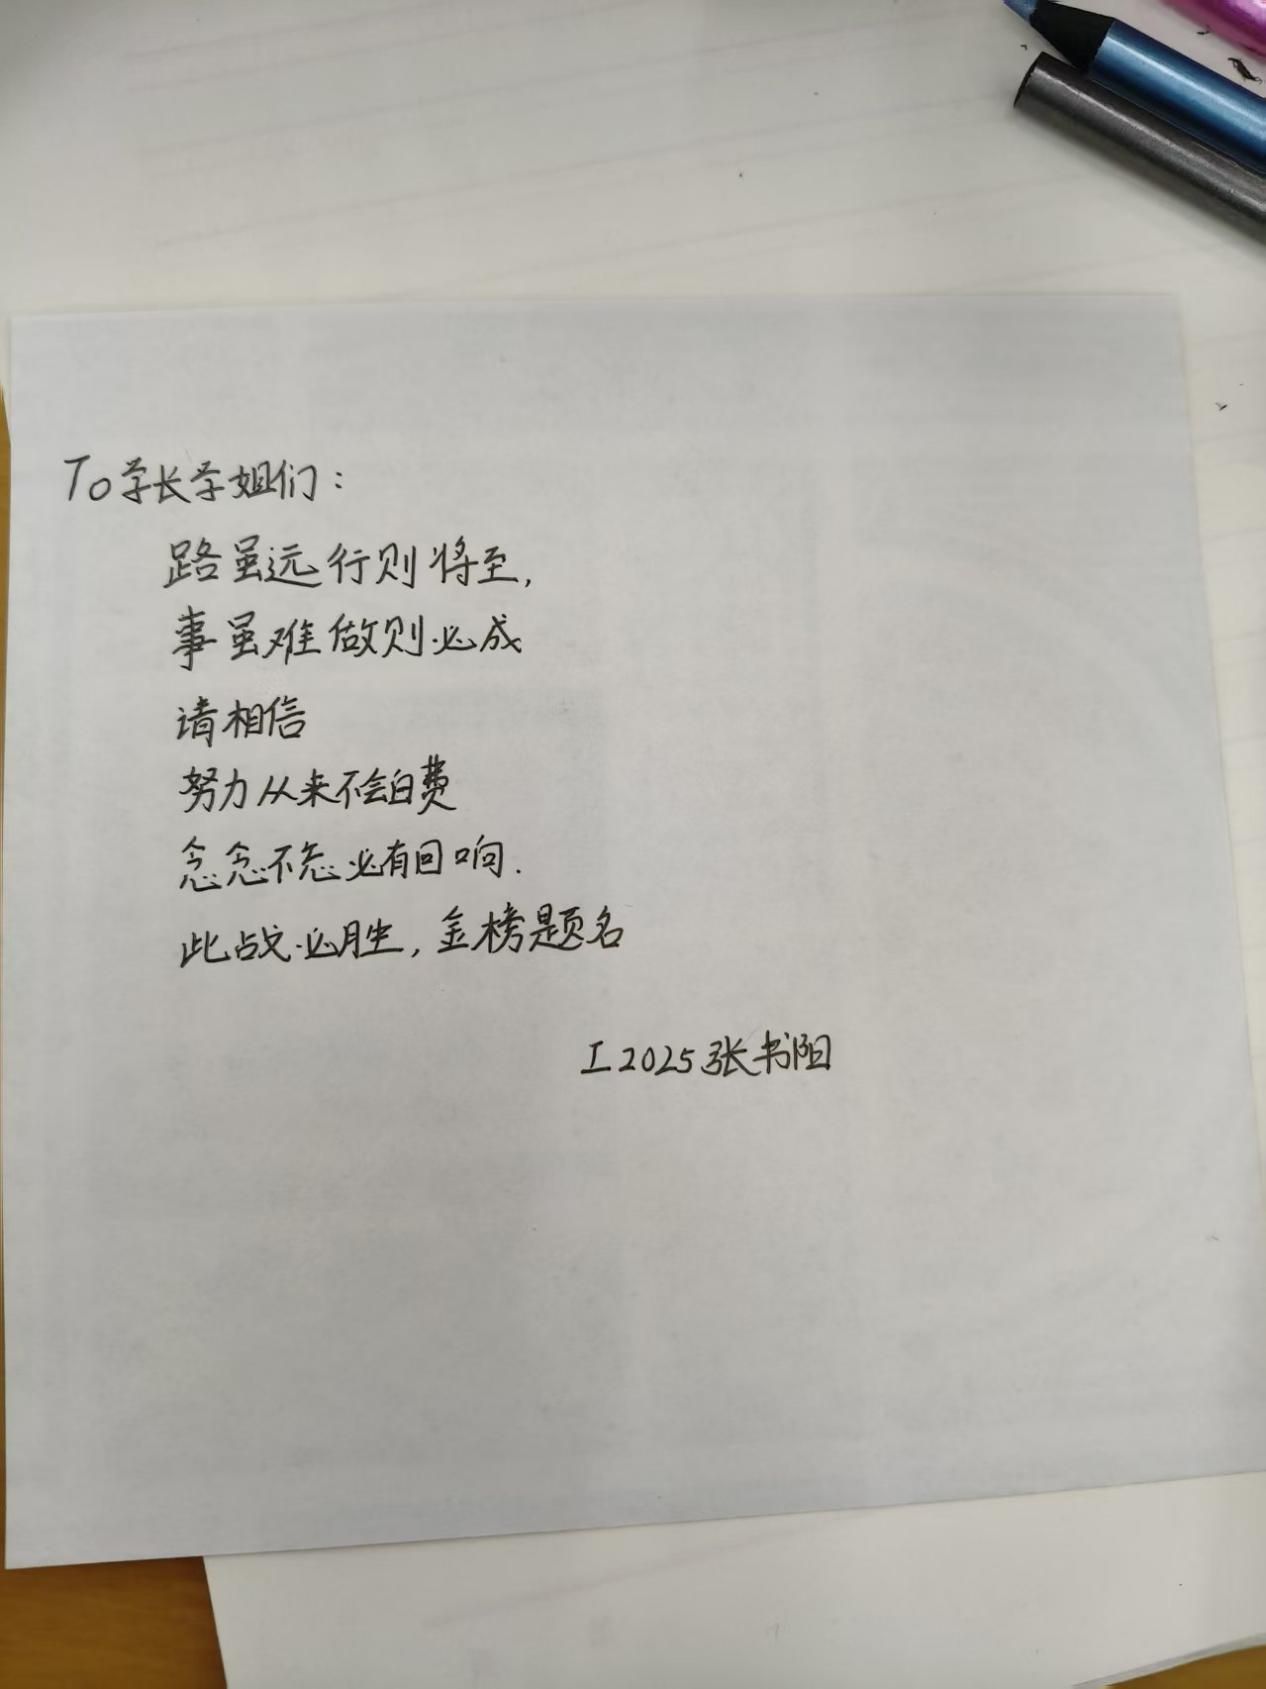 To学长学姐们：
路虽远行则将至，
事虽难做则必成
请相信
努力从来不会白费
念念不忘必有回响.
此战必胜，金榜题名
工2025张书阳